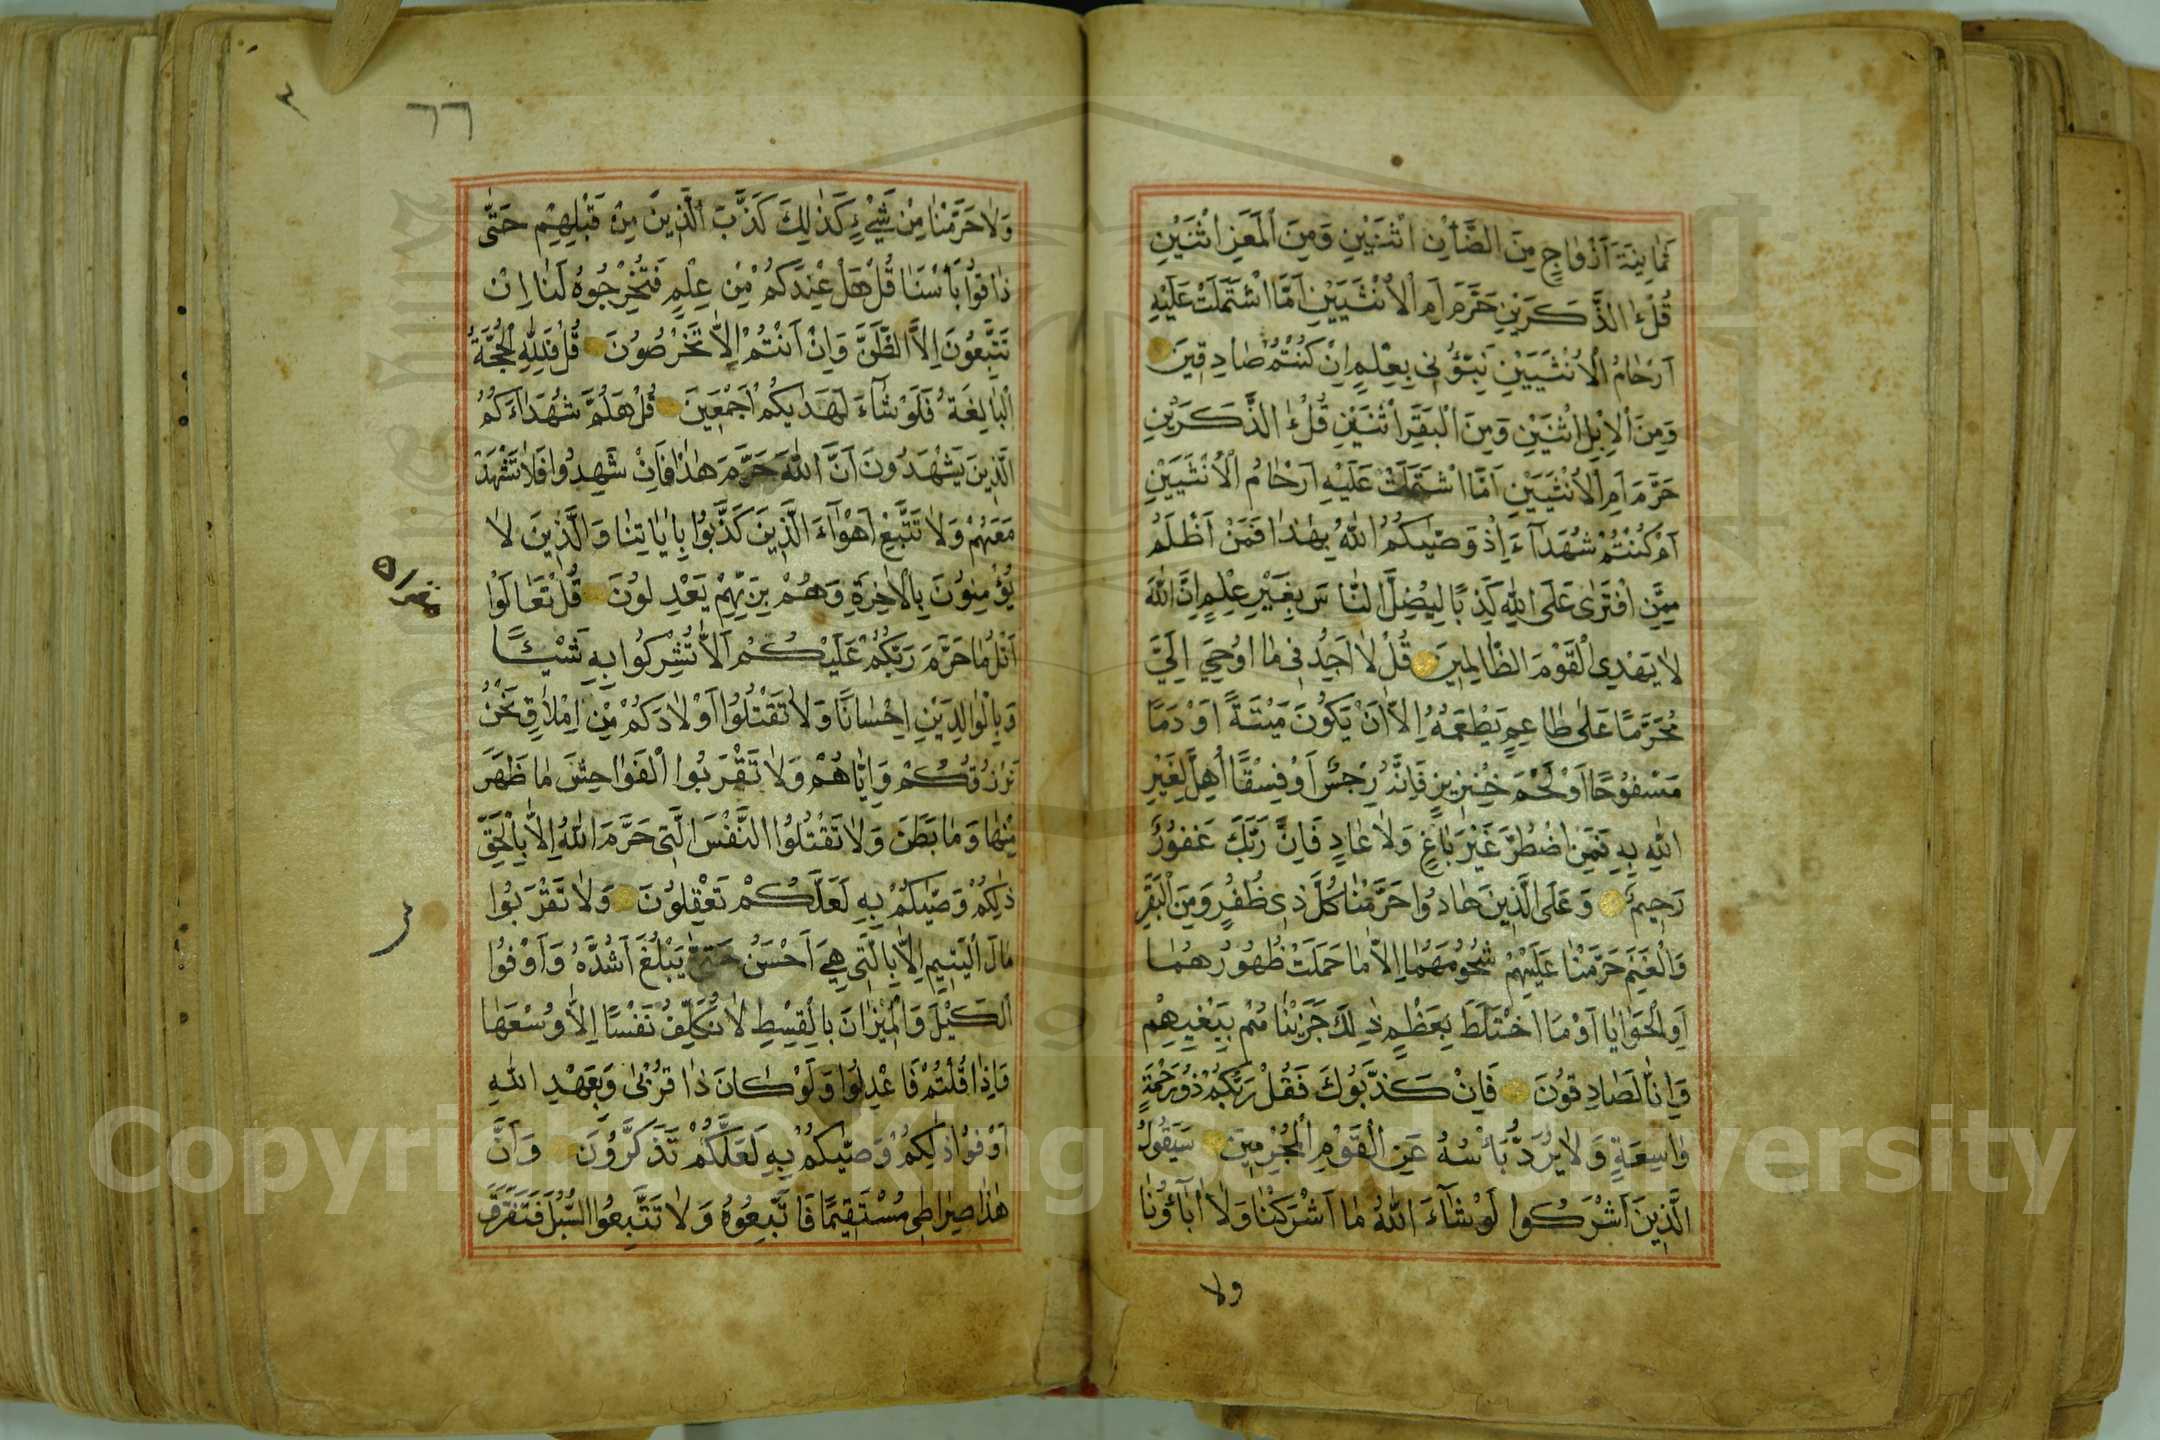 ثَمَانِيَةَ اَزْوَاجٍ مِنَ الضَّأْنِ اثْنَيْنِ وَمِنَ الْمَعْزِ اثْنَيْنِ
قُلْ ءَالذَّكَرَيْنِ حَرَّمَ اَمِ الْاُنْثَيَيْنِ اَمَّا اشْتَمَلَتْ عَلَيْهِ
اَرْحَامُ الْاُنْثَيَيْنِ نَبِّؤُنِى بِعِلْمٍ اِنْ كُنْتُمْ صَادِقِينَ
وَمِنَ الْاِبِلِ اثْنَيْنِ وَمِنَ الْبَقَرِ اثْنَيْنِ قُلْ ءَالذَّكَرَيْنِ
حَرَّمَ اَمِ الْاُنْثَيَيْنِ اَمَّا اشْتَمَلَتْ عَلَيْهِ اَرْحَامُ الْاُنْثَيَيْنِ
اَمْ كُنْتُمْ شُهَدَآءَ اِذْ وَصّٰيكُمُ اللّٰهُ بِهٰذَا فَمَنْ اَظْلَمُ
مِمَّنِ افْتَرٰى عَلَى اللّٰهِ كَذِبًا لِيُضِلَّ النَّاسَ بِغَيْرِ عِلْمٍ اِنَّ اللّٰهَ
لَا يَهْدِى الْقَوْمَ الظَّالِمِينَ قُلْ لَا اَجِدُ فِى مَا اُوحِيَ اِلَيَّ
مُحَرَّمًا عَلٰى طَاعِمٍ يَطْعَمُهُ اِلَّا اَنْ يَكُونَ مَيْتَةً اَوْ دَمًا
مَسْفُوحًا اَوْ لَحْمَ خِنْزِيرٍ فَاِنَّهُ رِجْسٌ اَوْ فِسْقًا اُهِلَّ لِغَيْرِ
اللّٰهِ بِهِ فَمَنِ اضْطُرَّ غَيْرَ بَاغٍ وَلَا عَادٍ فَاِنَّ رَبَّكَ غَفُورٌ
رَحِيمٌ وَعَلَى الَّذِينَ هَادُوا حَرَّمْنَا كُلَّ ذِى ظُفُرٍ وَمِنَ الْبَقَرِ
وَالْغَنَمِ حَرَّمْنَا عَلَيْهِمْ شُحُومَهُمَا اِلَّا مَا حَمَلَتْ ظُهُورُهُمَا
اَوِ الْحَوَايَا اَوْ مَا اخْتَلَطَ بِعَظْمٍ ذٰلِكَ جَزَيْنَاهُمْ بِبَغْيِهِمْ
وَاِنَّا لَصَادِقُونَ فَاِنْ كَذَّبُوكَ فَقُلْ رَبُّكُمْ ذُو رَحْمَةٍ
وَاسِعَةٍ وَلَا يُرَدُّ بَأْسُهُ عَنِ الْقَوْمِ الْمُجْرِمِينَ سَيَقُولُ
الَّذِينَ اَشْرَكُوا لَوْ شَآءَ اللّٰهُ مَا اَشْرَكْنَا وَلَا اٰبَآؤُنَا
ولا
٦٦
وَلَا حَرَّمْنَا مِنْ شَيْءٍ كَذٰلِكَ كَذَّبَ الَّذِينَ مِنْ قَبْلِهِمْ حَتّٰى
ذَاقُوا بَأْسَنَا قُلْ هَلْ عِنْدَكُمْ مِنْ عِلْمٍ فَتُخْرِجُوهُ لَنَا اِنْ
تَتَّبِعُونَ اِلَّا الظَّنَّ وَاِنْ اَنْتُمْ اِلَّا تَخْرُصُونَ قُلْ فَلِلّٰهِ الْحُجَّةُ
الْبَالِغَةُ فَلَوْ شَآءَ لَهَدٰيكُمْ اَجْمَعِينَ قُلْ هَلُمَّ شُهَدَآءَكُمُ
الَّذِينَ يَشْهَدُونَ اَنَّ اللّٰهَ حَرَّمَ هٰذَا فَاِنْ شَهِدُوا فَلَا تَشْهَدْ
مَعَهُمْ وَلَا تَتَّبِعْ اَهْوَآءَ الَّذِينَ كَذَّبُوا بِاٰيَاتِنَا وَالَّذِينَ لَا
يُؤْمِنُونَ بِالْاٰخِرَةِ وَهُمْ بِرَبِّهِمْ يَعْدِلُونَ قُلْ تَعَالَوْا
اَتْلُ مَا حَرَّمَ رَبُّكُمْ عَلَيْكُمْ اَلَّا تُشْرِكُوا بِهِ شَيْئًا
وَبِالْوَالِدَيْنِ اِحْسَانًا وَلَا تَقْتُلُوا اَوْلَادَكُمْ مِنْ اِمْلَاقٍ نَحْنُ
نَرْزُقُكُمْ وَاِيَّاهُمْ وَلَا تَقْرَبُوا الْفَوَاحِشَ مَا ظَهَرَ
مِنْهَا وَمَا بَطَنَ وَلَا تَقْتُلُوا النَّفْسَ الَّتِى حَرَّمَ اللّٰهُ اِلَّا بِالْحَقِّ
ذٰلِكُمْ وَصّٰيكُمْ بِهِ لَعَلَّكُمْ تَعْقِلُونَ وَلَا تَقْرَبُوا
مَالَ الْيَتِيمِ اِلَّا بِالَّتِى هِيَ اَحْسَنُ حَتّٰى يَبْلُغَ اَشُدَّهُ وَاَوْفُوا
الْكَيْلَ وَالْمِيْزَانَ بِالْقِسْطِ لَا نُكَلِّفُ نَفْسًا اِلَّا وُسْعَهَا
فَاِذَا قُلْتُمْ فَاعْدِلُوا وَلَوْ كَانَ ذَا قُرْبٰى وَبِعَهْدِ اللّٰهِ
اَوْفُوا ذٰلِكُمْ وَصّٰيكُمْ بِهِ لَعَلَّكُمْ تَذَكَّرُونَ وَاَنَّ
هٰذَا صِرَاطِى مُسْتَقِيمًا فَاتَّبِعُوهُ وَلَا تَتَّبِعُوا السُّبُلَ فَتَفَرَّقَ
Copyright © King Saud University